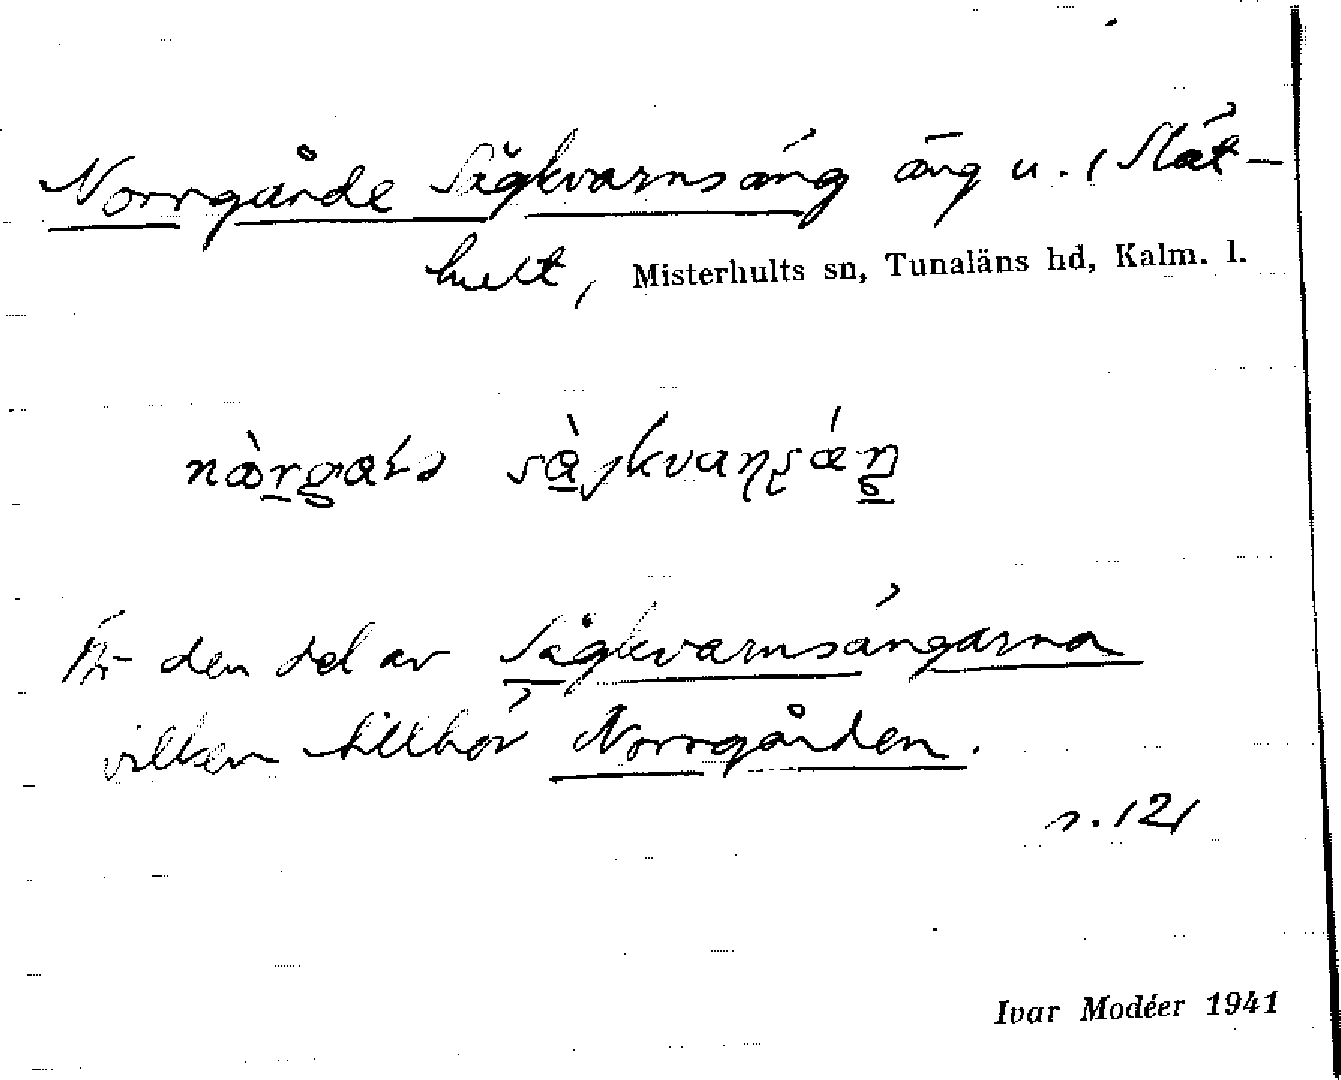 Norrgårde Sågkvarnsäng äng u. 1 Slät-
hult, Misterhults sn, Tunaläns hd, Kalm. l.
Är den del av Sågkvarnsängarna
vilken tillhör Norrgården.
s. 121
Ivar Modéer 1941